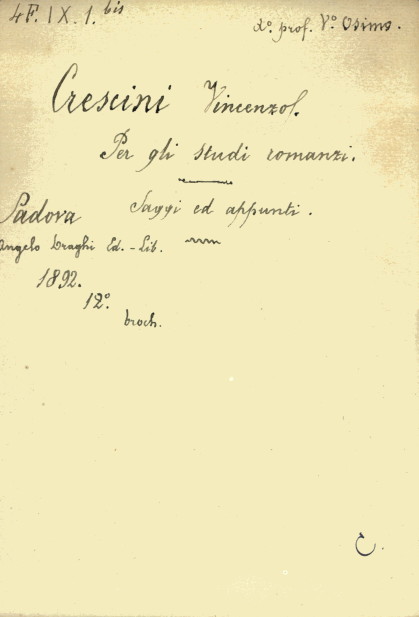 4F. IX. 1. bis
d.º prof. V.º Osimo.
Crescini Vincenzo.
Per gli studi romanzi.
Saggi ed appunti.
Padova
Angelo Draghi Ed. - Lib.
1892.
12.º
broch.
C.